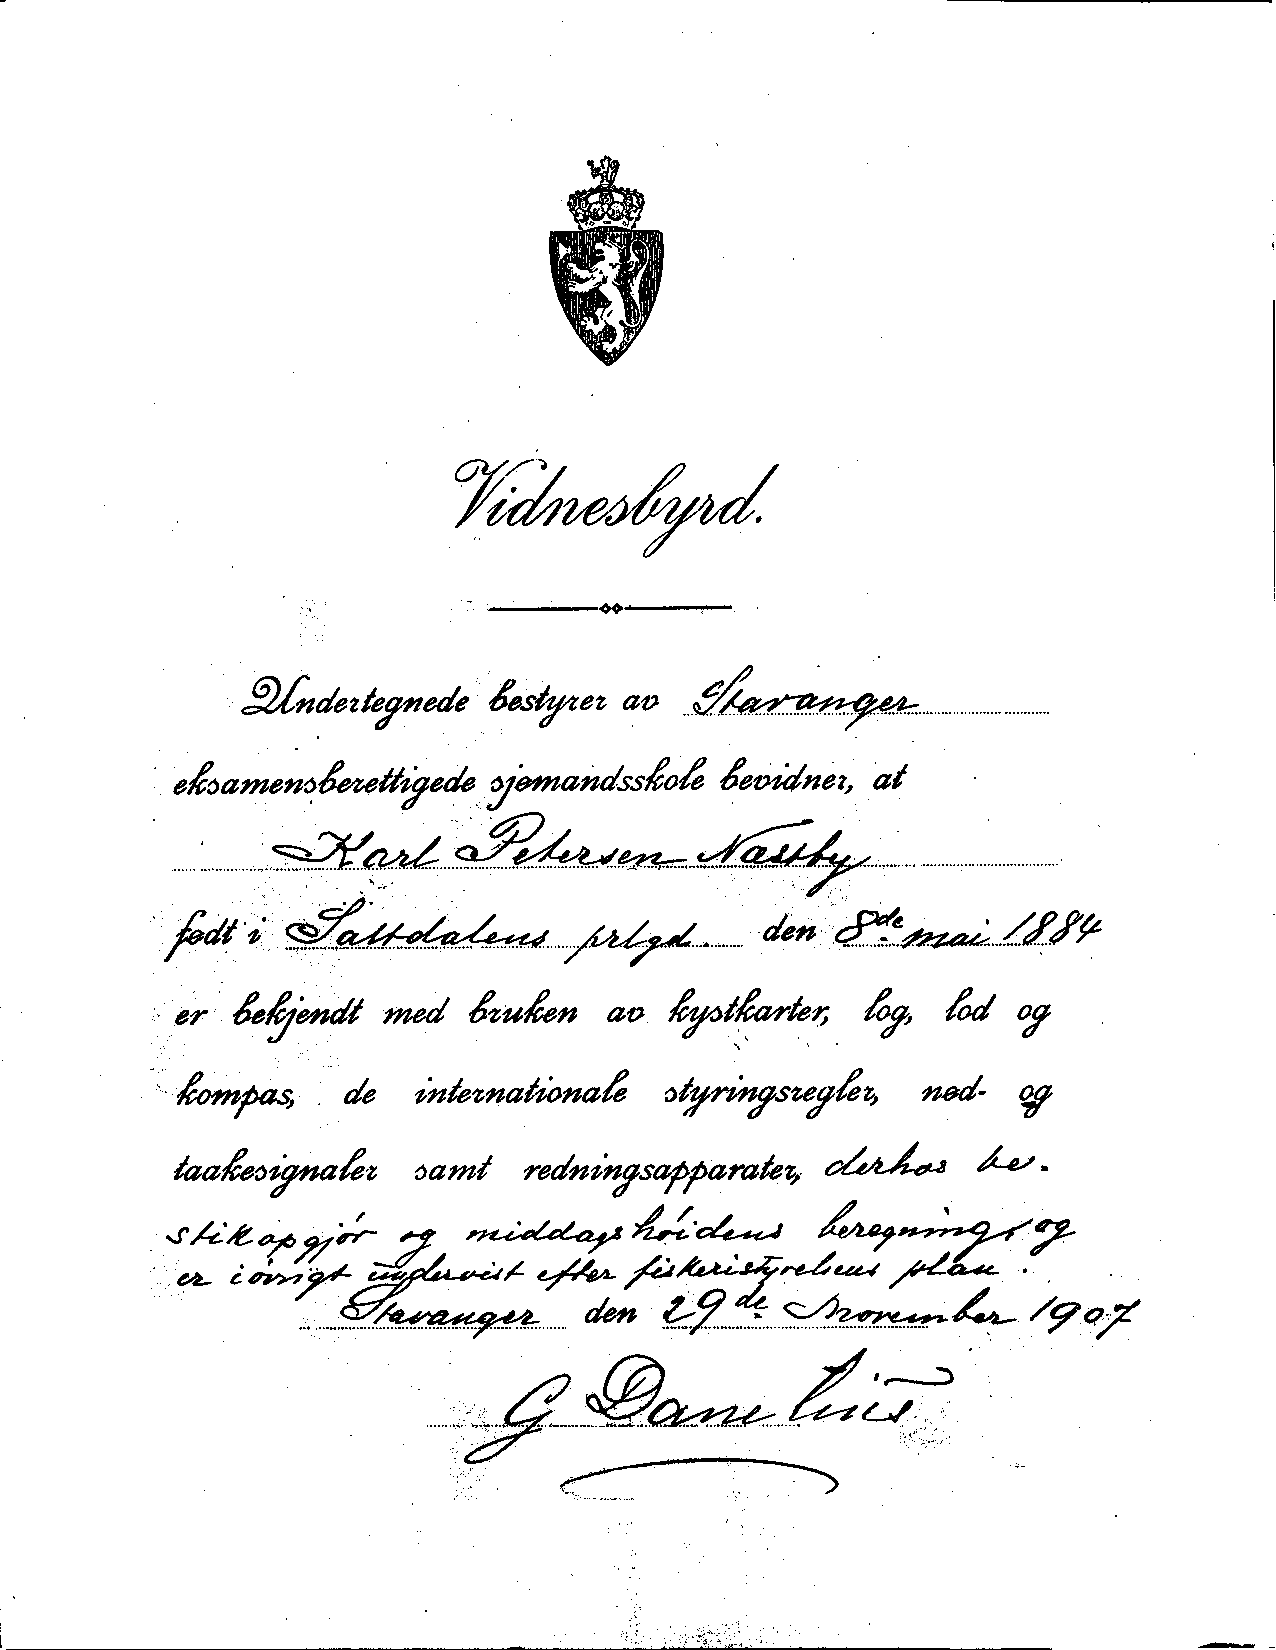 Vidnesbyrd.
Undertegnede bestyrer av Stavanger
eksamensberettigede sjømandsskole bevidner, at
Karl Petersen Næstby
født i Saltdalens prlgd. den 8de mai 1884
er bekjendt med bruken av kystkarter, log, lod og
kompas, de internationale styringsregler, nød- og
taakesignaler samt redningsapparater, derhos be-
stikopgjør og middagshøidens beregning, og
er iøvrigt undervist efter fiskeristyrelsens plan.
Stavanger den 29de November 1907
G Danelius